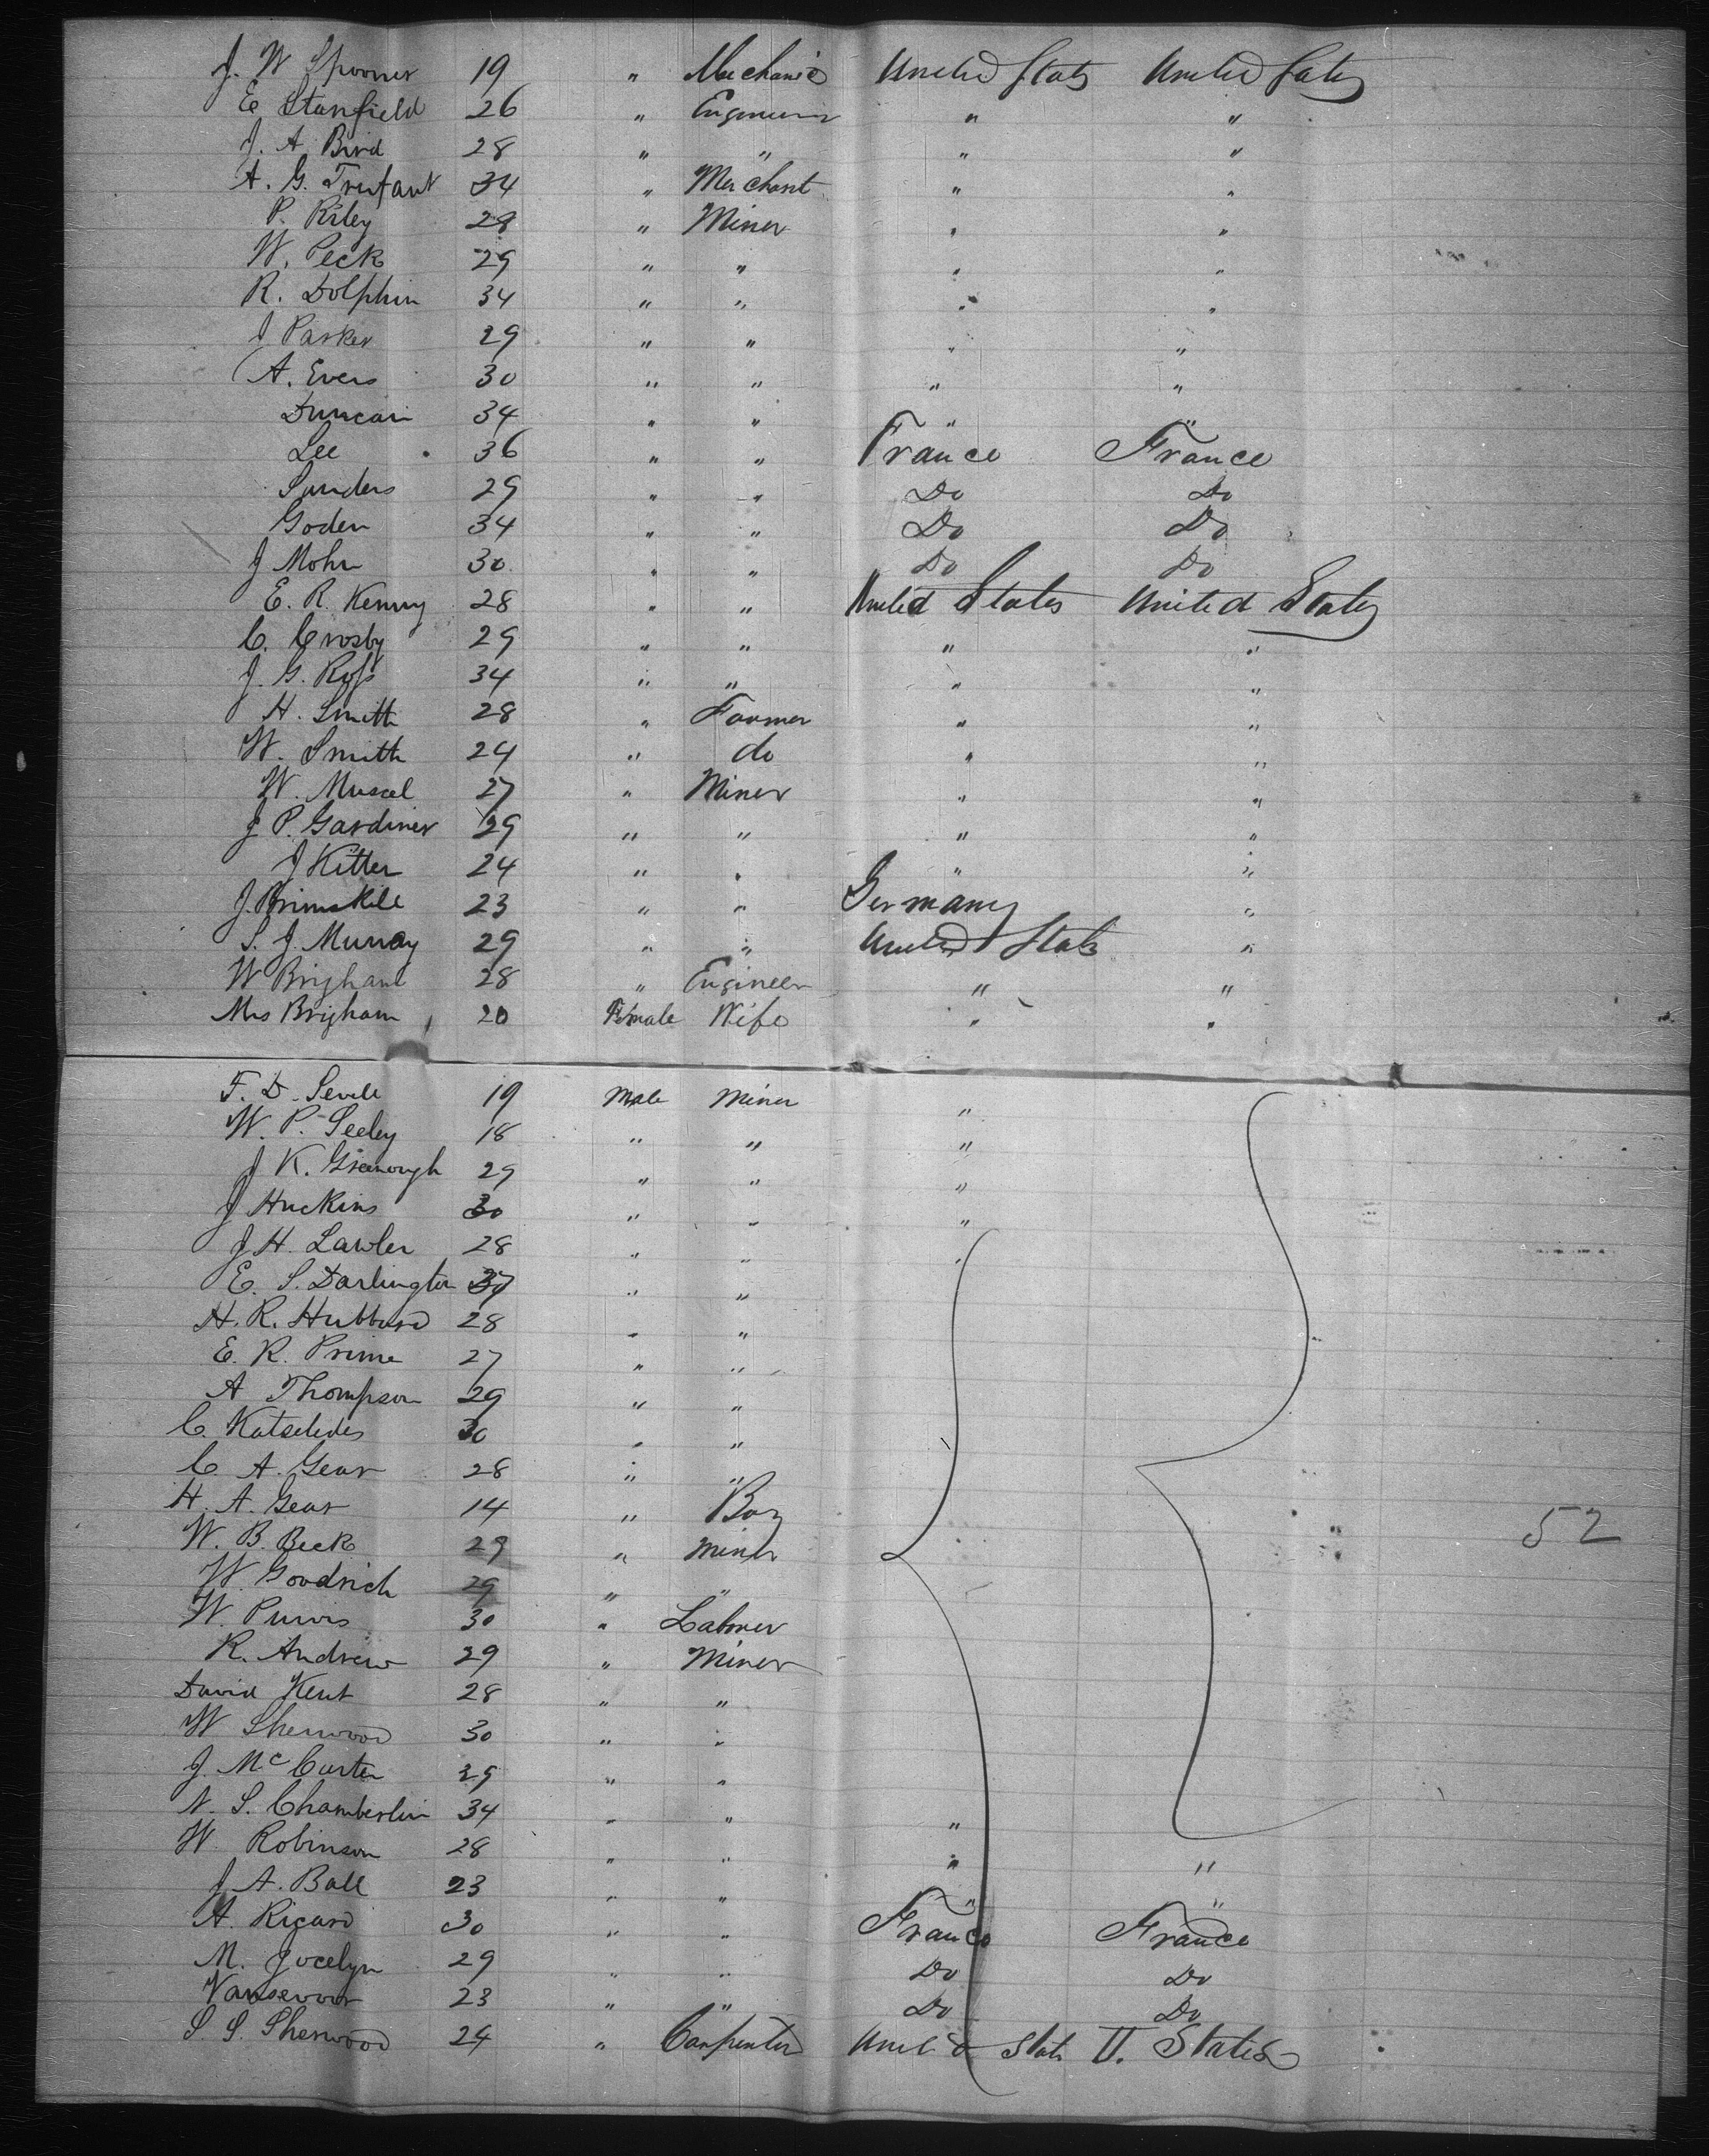 J. W Spooner 19 " Mechanic United States United States
E Stanfield 26 " Engineer " "
J. A. Bird 28 " " " "
A. G. Trufant 34 " Merchant " "
P. Riley 28 " Miner " "
W. Peck 29 " " " "
R. Dolphin 34 " " " "
J Parker 29 " " " "
A. Evers 30 " " " "
Duncan 34 " " " "
Lee 36 " " France France
Sanders 29 " " Do Do
Goden 34 " " Do Do
J Mohr 30 " " Do Do
E. R. Kenny 28 " " United States United States
C. Crosby 29 " " " "
J. G. Ross 34 " " " "
H. Smith 28 " Farmer " "
W. Smith 24 " do " "
W. Muscel 27 " Miner " "
J P. Gardiner 29 " " " "
J Kitter 24 " " " "
J. 23 " " Germany "
S. J. Murray 29 " " United States "
W Brigham 28 " Engineer " "
Mrs Brigham 20 Female Wife " "
F. D. 19 Male Miner "
W. P. Seeley 18 " " "
J K. Greenough 29 " " "
J Huckins 30 " " "
J H. Lawler 28 " " "
E. S. Darlington " "
H. R. Hubbard 28 " "
E. R. Prime 27 " "
A Thompson 29 " "
C. 30 " "
C A. Gear 28 " "
H. A. Gear 14 " Boy
W. B. Beck 29 " Miner 52
W. Goodrich 29 " "
W. Purvis 30 " Labrer
R. Andrew 29 " Miner
David Kent 28 " "
W Sherwood 30 " "
J. McCarter 29 " "
N. S. Chamberlin 34 " " "
W Robinson 28 " " " "
J. A. Ball 23 " " " "
A. Rigard 30 " " France France
M. Jocelyn 29 " " Do Do
23 " " Do Do
S. S. Sherwood 24 " Carpenter United States U. States